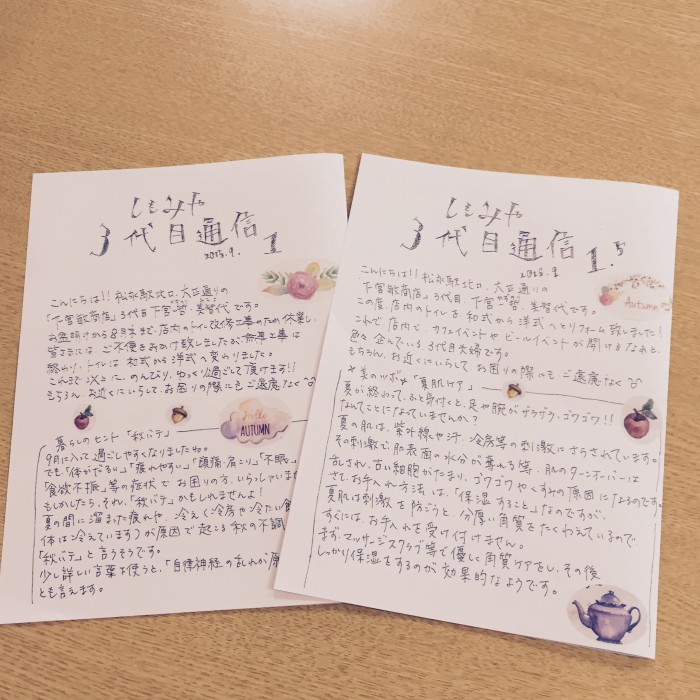 しもみや
3代目通信 1
2025.9.
こんにちは!! 松永駅北口、大正通りの
「下宮商店」3代目下宮 、美智代です。
お盆明けから8月末まで、店内のトイレ改修工事のため休業し、
皆さまには、ご不便をおかけ致しましたが無事工事は
終わり、トイレは 和式から洋式へ変わりました。
これまで以上に、のんびり、ゆっくり過ごして頂けます!!
もちろん お近くにいらして、お困りの際にもご遠慮なく
Hello
AUTUMN
暮らしのヒント「秋バテ」
9月に入って過ごしやすくなりましたね。
でも、「体がだるい」「疲れやすい」「頭痛・肩こり」「不眠」
「食欲不振」等の症状で お困りの方、いらっしゃいませ
もしかしたら、それ、「秋バテ」かもしれませんよ!
夏の間に溜まった疲れや、冷え(冷房や冷たい食
体は冷えています)が原因で起こる秋の不調
「秋バテ」と言うそうです。
少し詳しい言葉を使うと、「自律神経の乱れが原
とも言えます。
しもみや
3代目通信 1.5
2025.9
こんにちは!! 松永駅北口、大正通りの
「下宮商店」3代目、下宮 、美智代です。
この度、店内のトイレを 和式から洋式へとリフォーム致しました!
これで、店内で、カフェイベントや ビールイベントが開けるなぁと、
色々 企んでいる、3代目夫婦です。
もちろん、お近くにいらして、お困りの際にも、ご遠慮なく
Autumn
美のツボ 「夏肌ケア」
夏が終わって、ふと気付くと、足や腕がザラザラ、ゴワゴワ!!
なんてことになっていませんか?
夏の肌は、紫外線や汗、冷房等の刺激にさらされています。
その刺激で、肌表面の水分が奪われる等、肌のターンオーバーは
乱され、古い細胞がたまり、ゴワゴワやくすみの原因になるのです。
さて、お手入れ方法は、「保湿すること」なのですが、
夏肌は刺激を防ごうと、分厚い角質をたくわえているので
すぐには お手入れを受け付けません。
まず、マッサージやスクラブ等で優しく角質ケアをし、その後
しっかり保湿をするのが 効果的なようです。